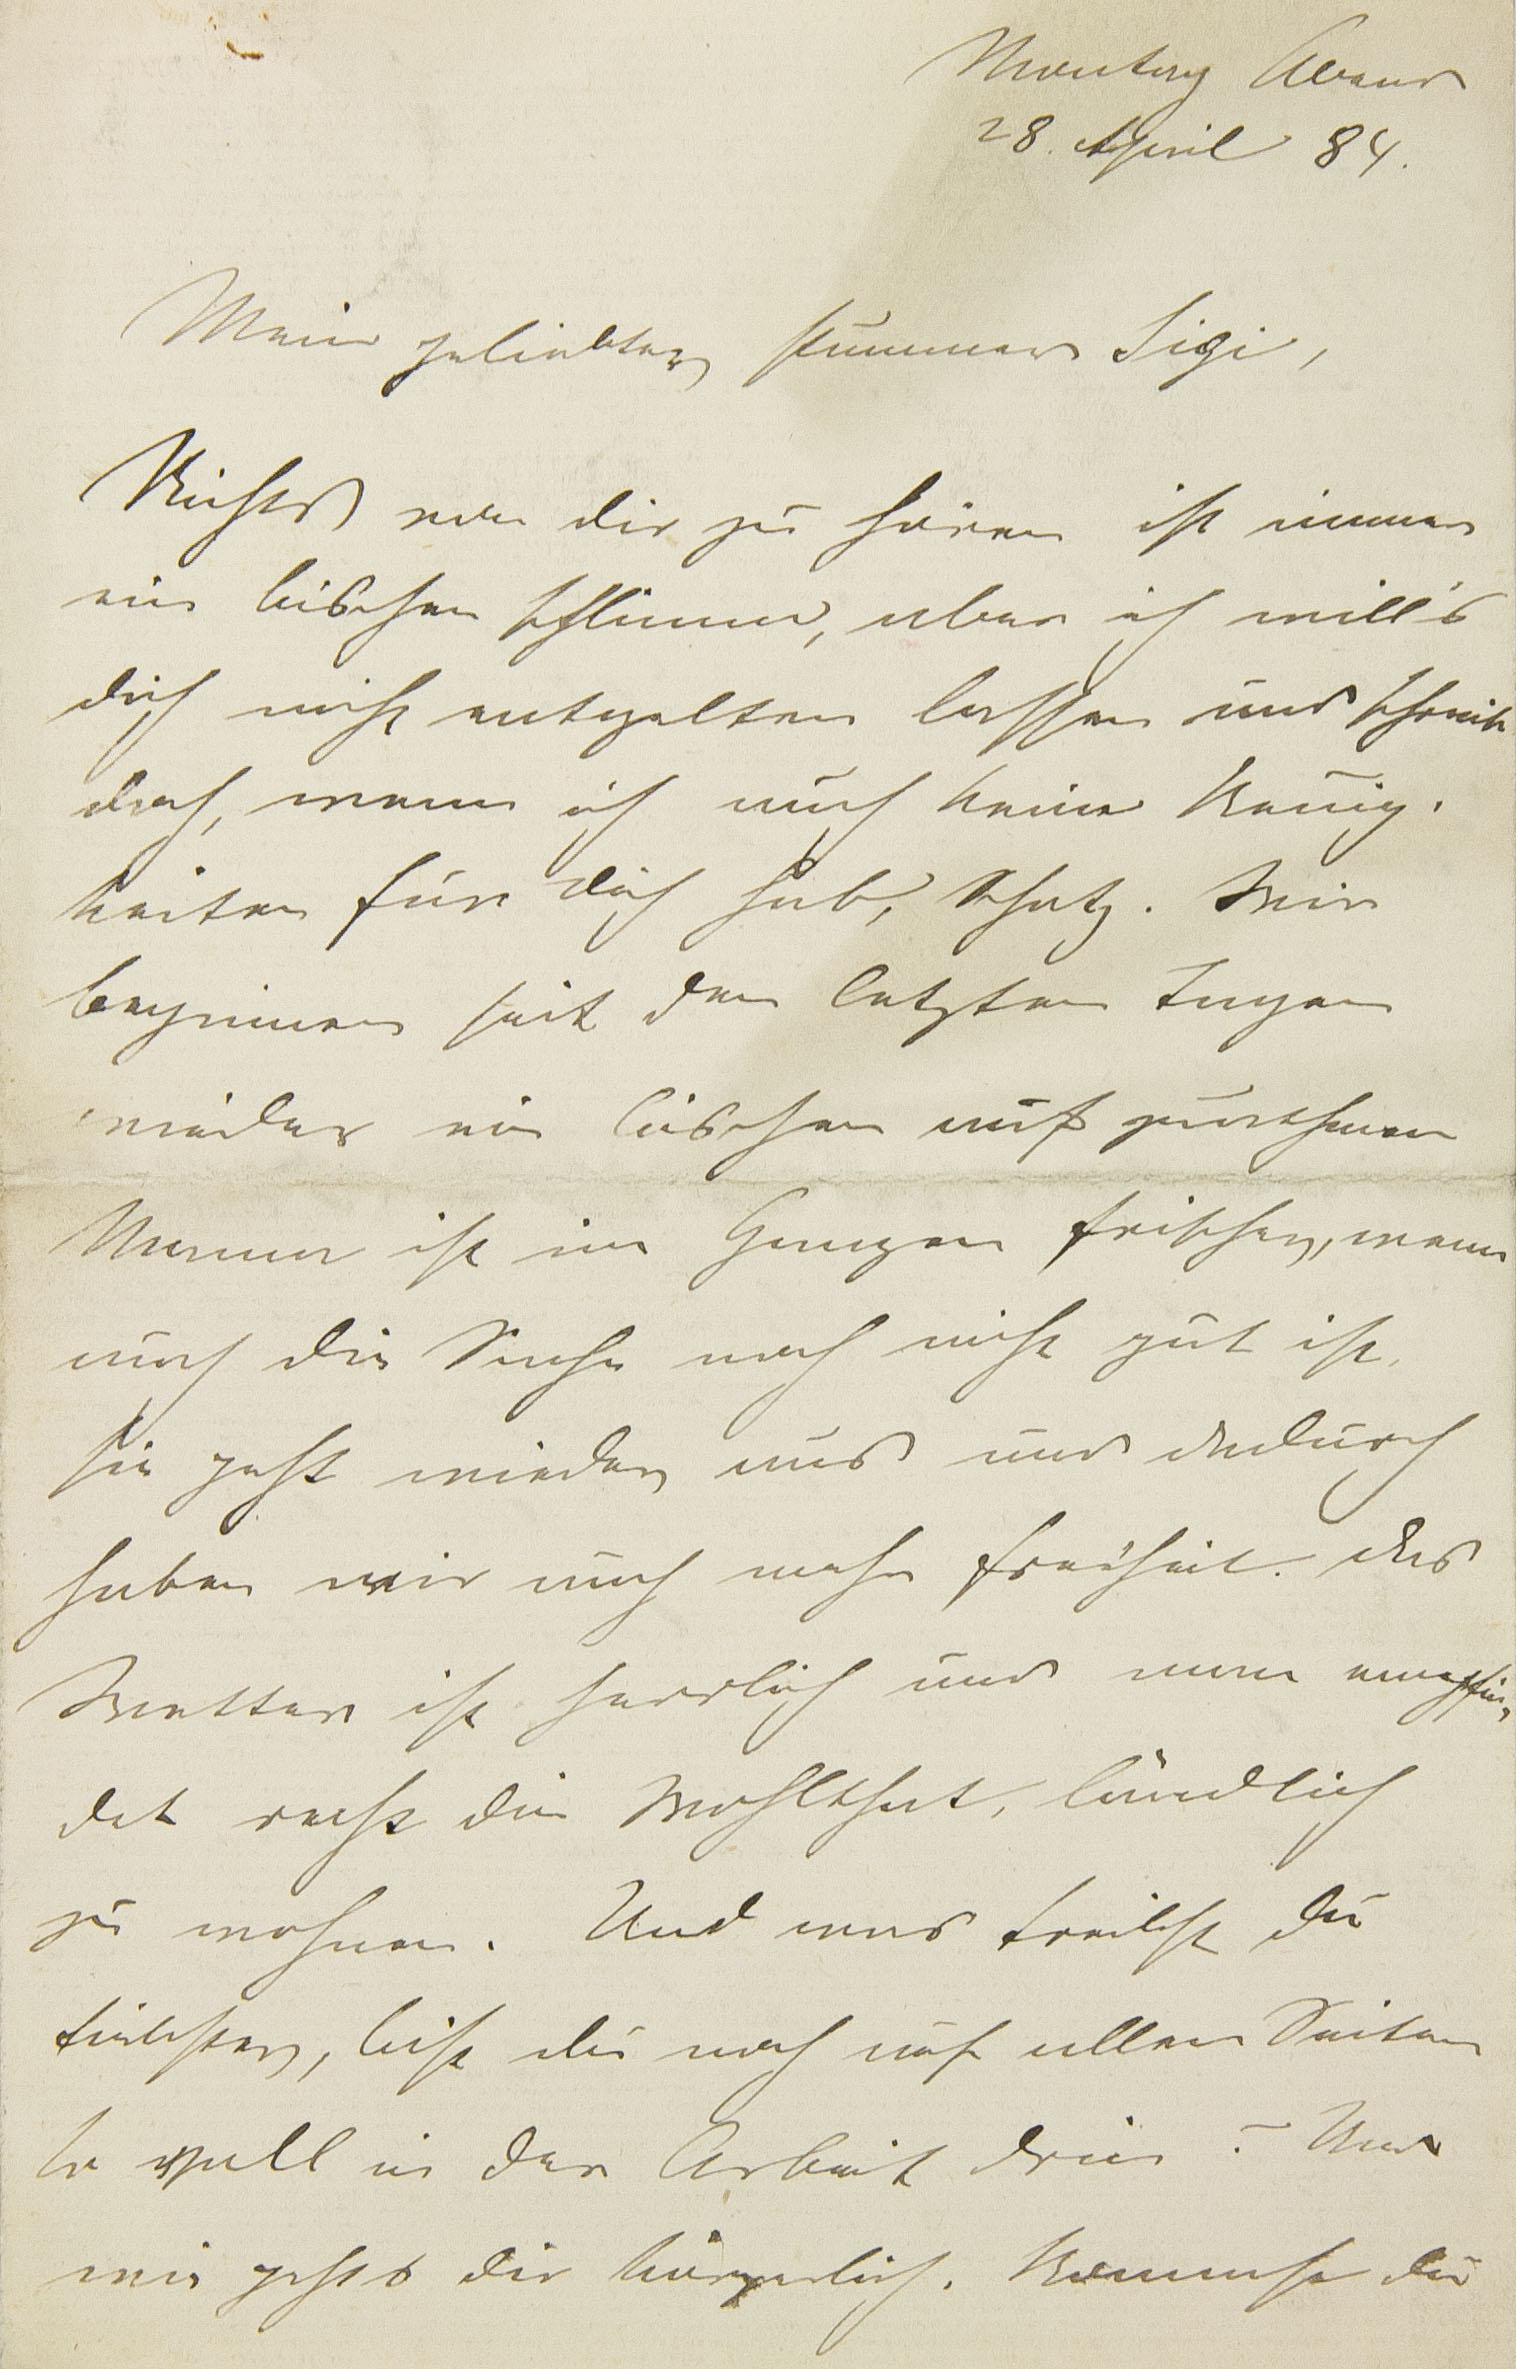 Montag Abend
28. April 84.
Mein geliebter stummer Sigi,
Nichts von dir zu hören ist immer
ein bischen schlimm, aber ich will's
dich nicht entgelten lassen und schreib
doch, wenn ich auch keine Neuig-
keiten für dich hab, Schatz. Wir
beginnen seit den letzten Tagen
wieder ein bischen aufzuathmen
Mama ist im Ganzen frischer, wenn
auch die Sache noch nicht gut ist,
sie geht wieder aus und dadurch
haben wir auch mehr Freiheit. Das
Wetter ist herrlich und man empfin-
det recht die Wohlthat, ländlich
zu wohnen. Und was treibst du
Liebster, bist du noch auf allen Seiten
so voll in der Arbeit drin? Und
wie gehts dir körperlich. Kommst du